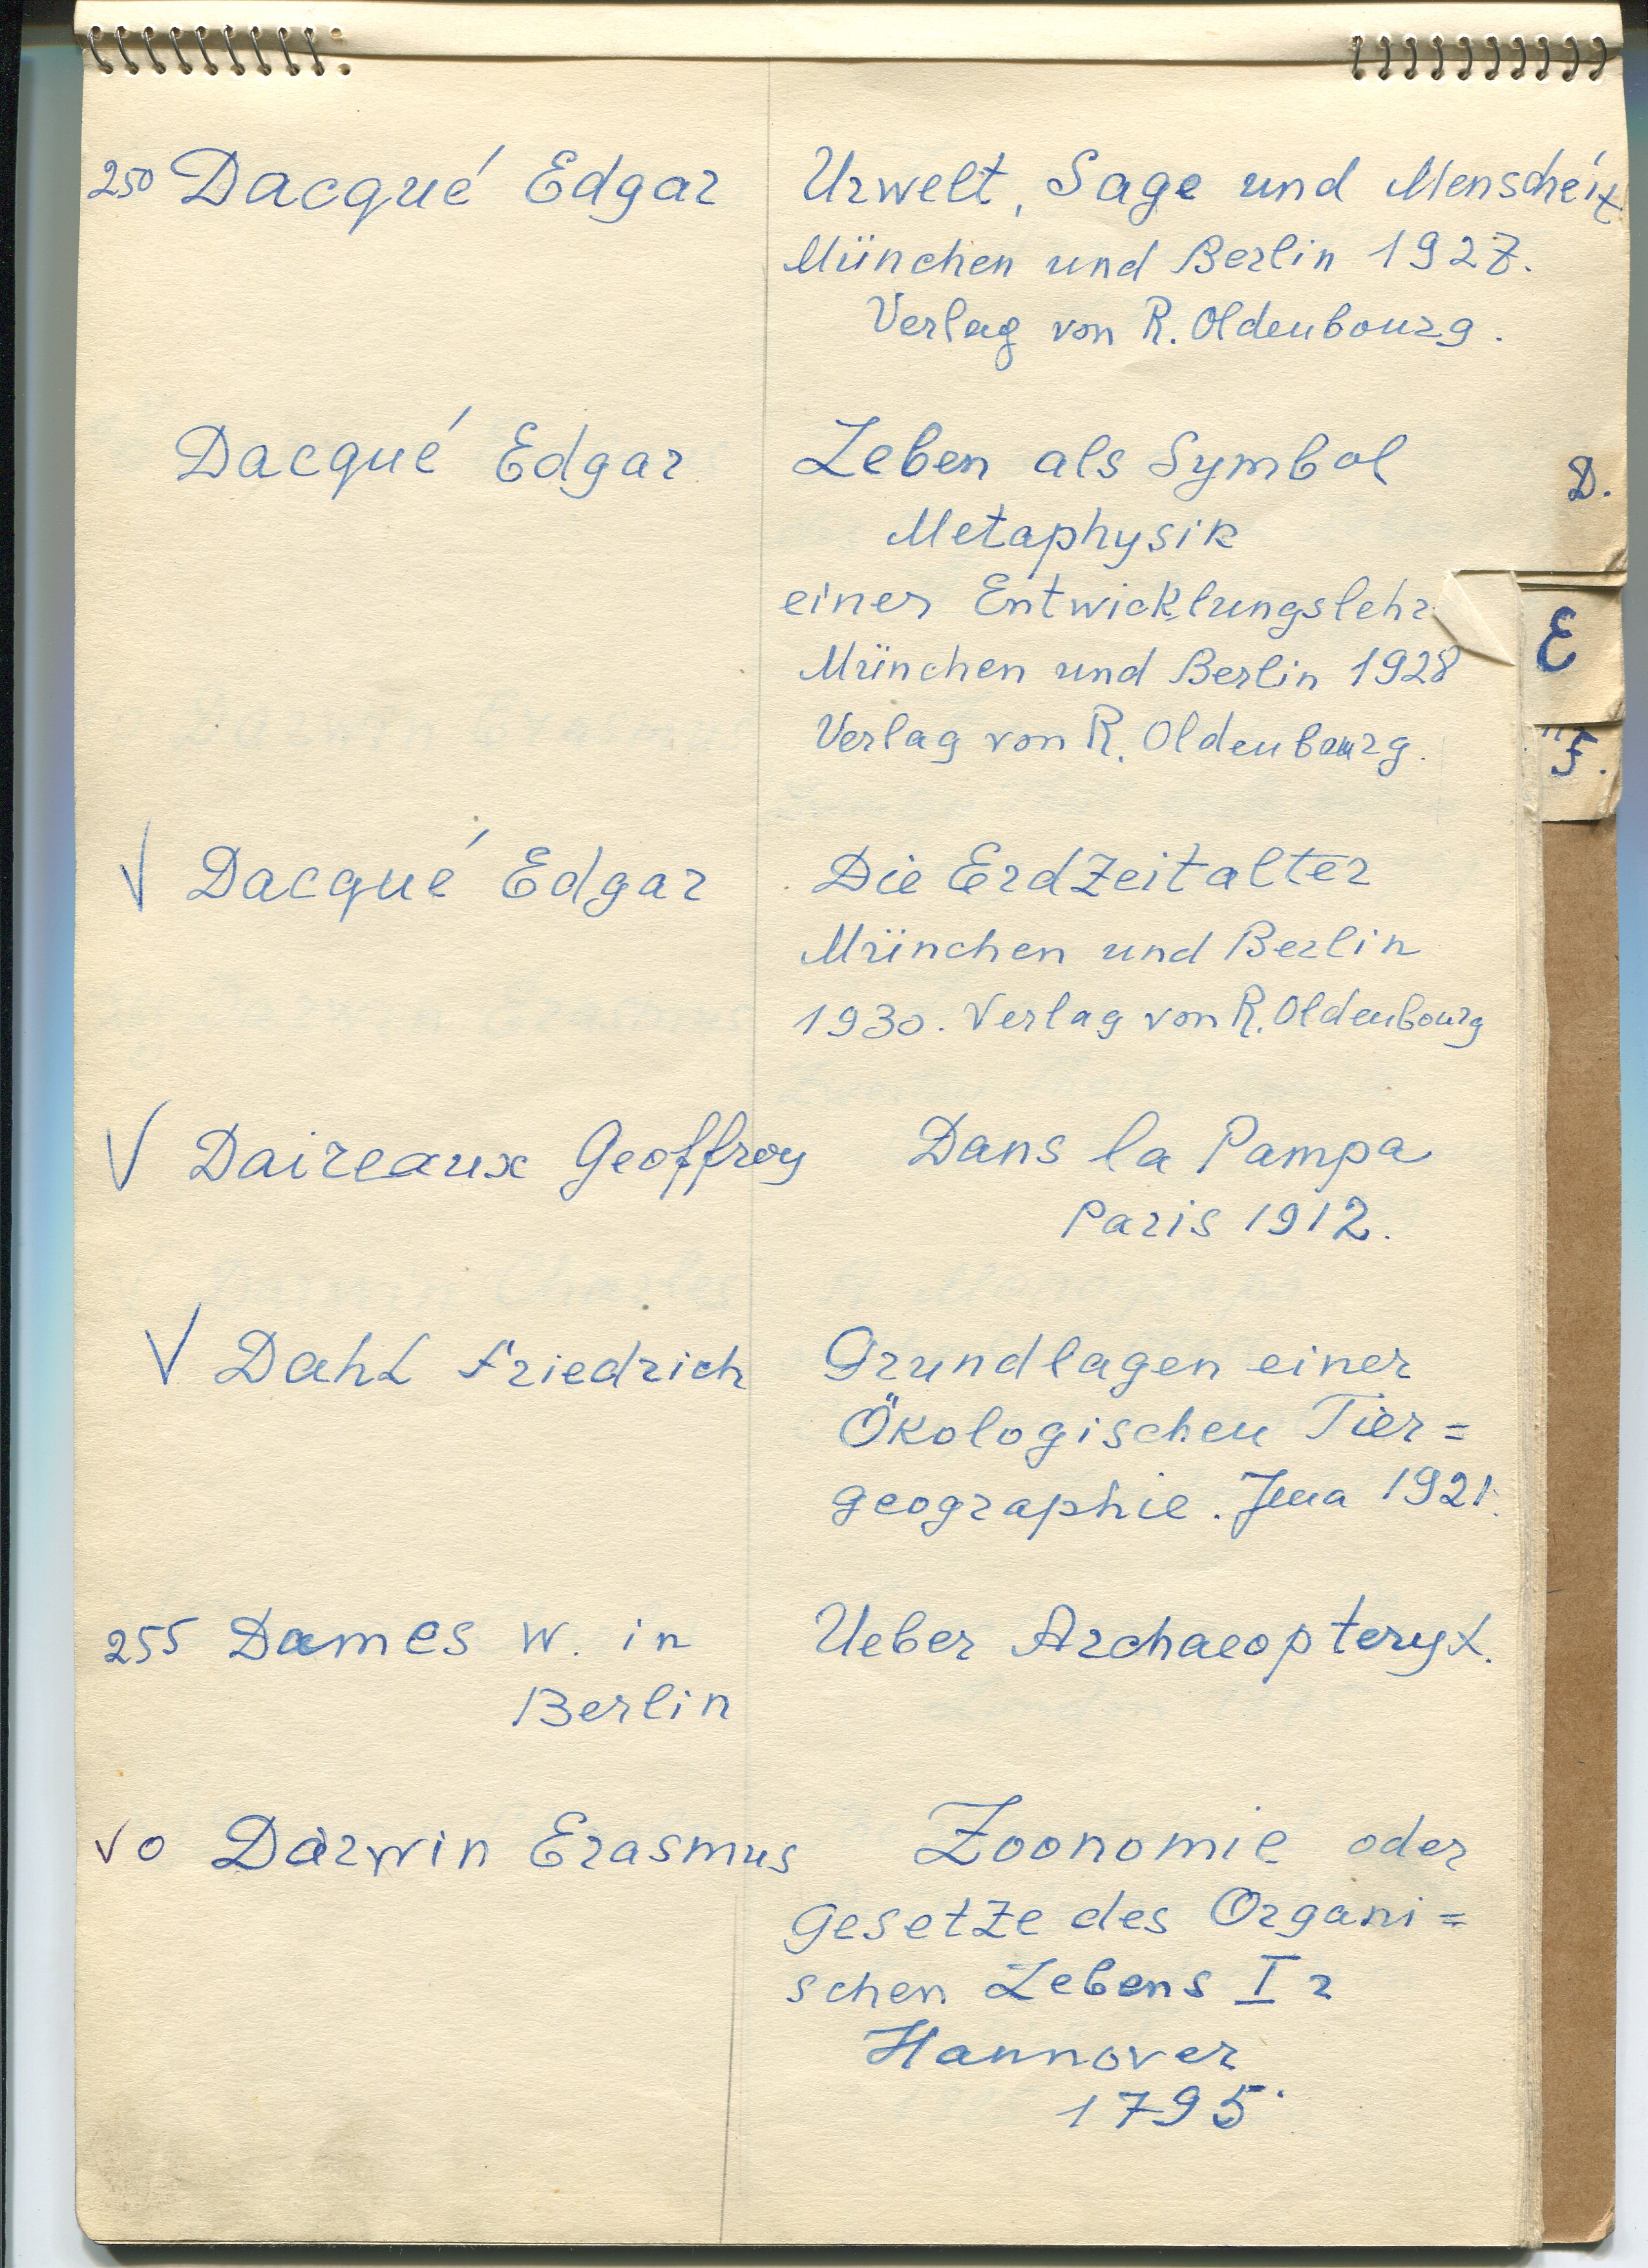 250 Dacqué Edgar Urwelt, Sage und Menscheit
München und Berlin 1927.
Verlag von R. Oldenbourg.
Dacqué Edgar Leben als Symbol
D.
Metaphysik
einer Entwicklungslehr
E
München und Berlin 1928
Verlag von R. Oldenbourg.
F.
√ Dacqué Edgar Die Erdzeitalter
München und Berlin
1930. Verlag von R. Oldenbourg
√ Daireaux Geoffroy Dans la Pampa
Paris 1912.
√ Dahl Friedrich Grundlagen einer
Ökologischen Tier=
geographie. Jena 1921.
255 Dames W. in Ueber Archaeopteryx.
Berlin
√ o Darwin Erasmus Zoonomie oder
Gesetze des Organi=
schen Lebens I 2
Hannover
1795.